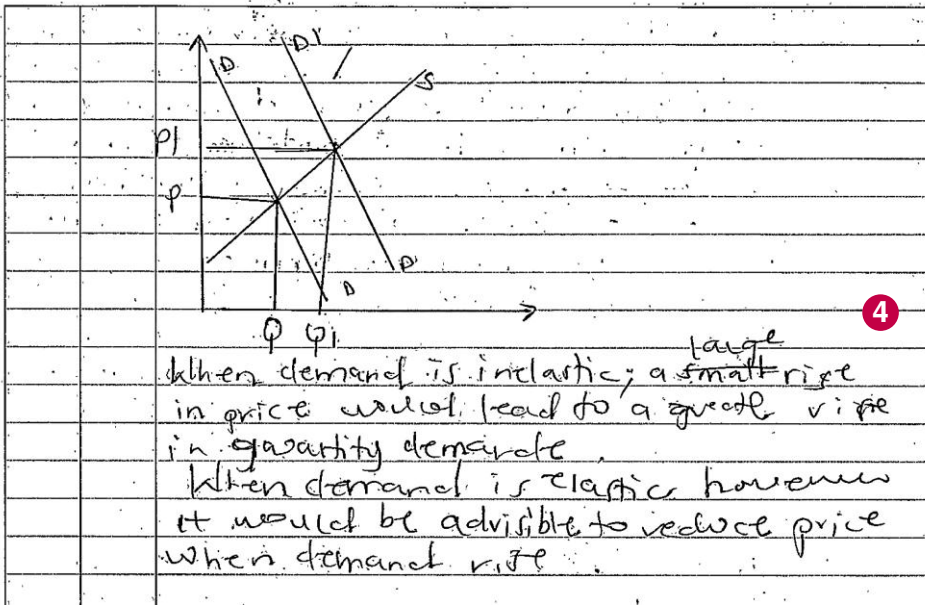 D D1
S
P1
P
D
D
Q Q1
4
large
When demand is inelastic, a small rise
in price would lead to a great rise
in quantity demande.
When demand is elastic however
it would be advisible to reduce price
when demand rise.